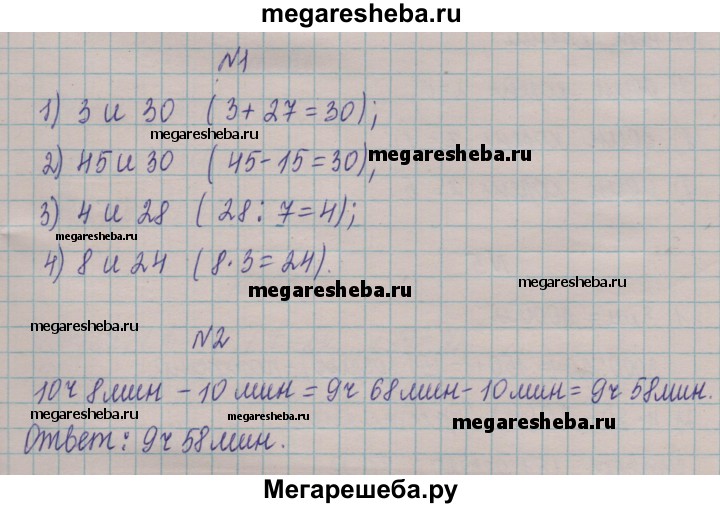 megaresheba.ru
№1
1) 3 и 30 (3+27=30);
megaresheba.ru
2) 45 и 30 (45-15=30);
megaresheba.ru
3) 4 и 28 (28:7=4);
megaresheba.ru
4) 8 и 24 (8·3=24).
megaresheba.ru
megaresheba.ru
megaresheba.ru
№2
10ч 8мин - 10 мин = 9ч 68мин - 10мин = 9ч 58мин.
megaresheba.ru
megaresheba.ru
megaresheba.ru
Ответ: 9ч 58мин.
Мегарешеба.ру